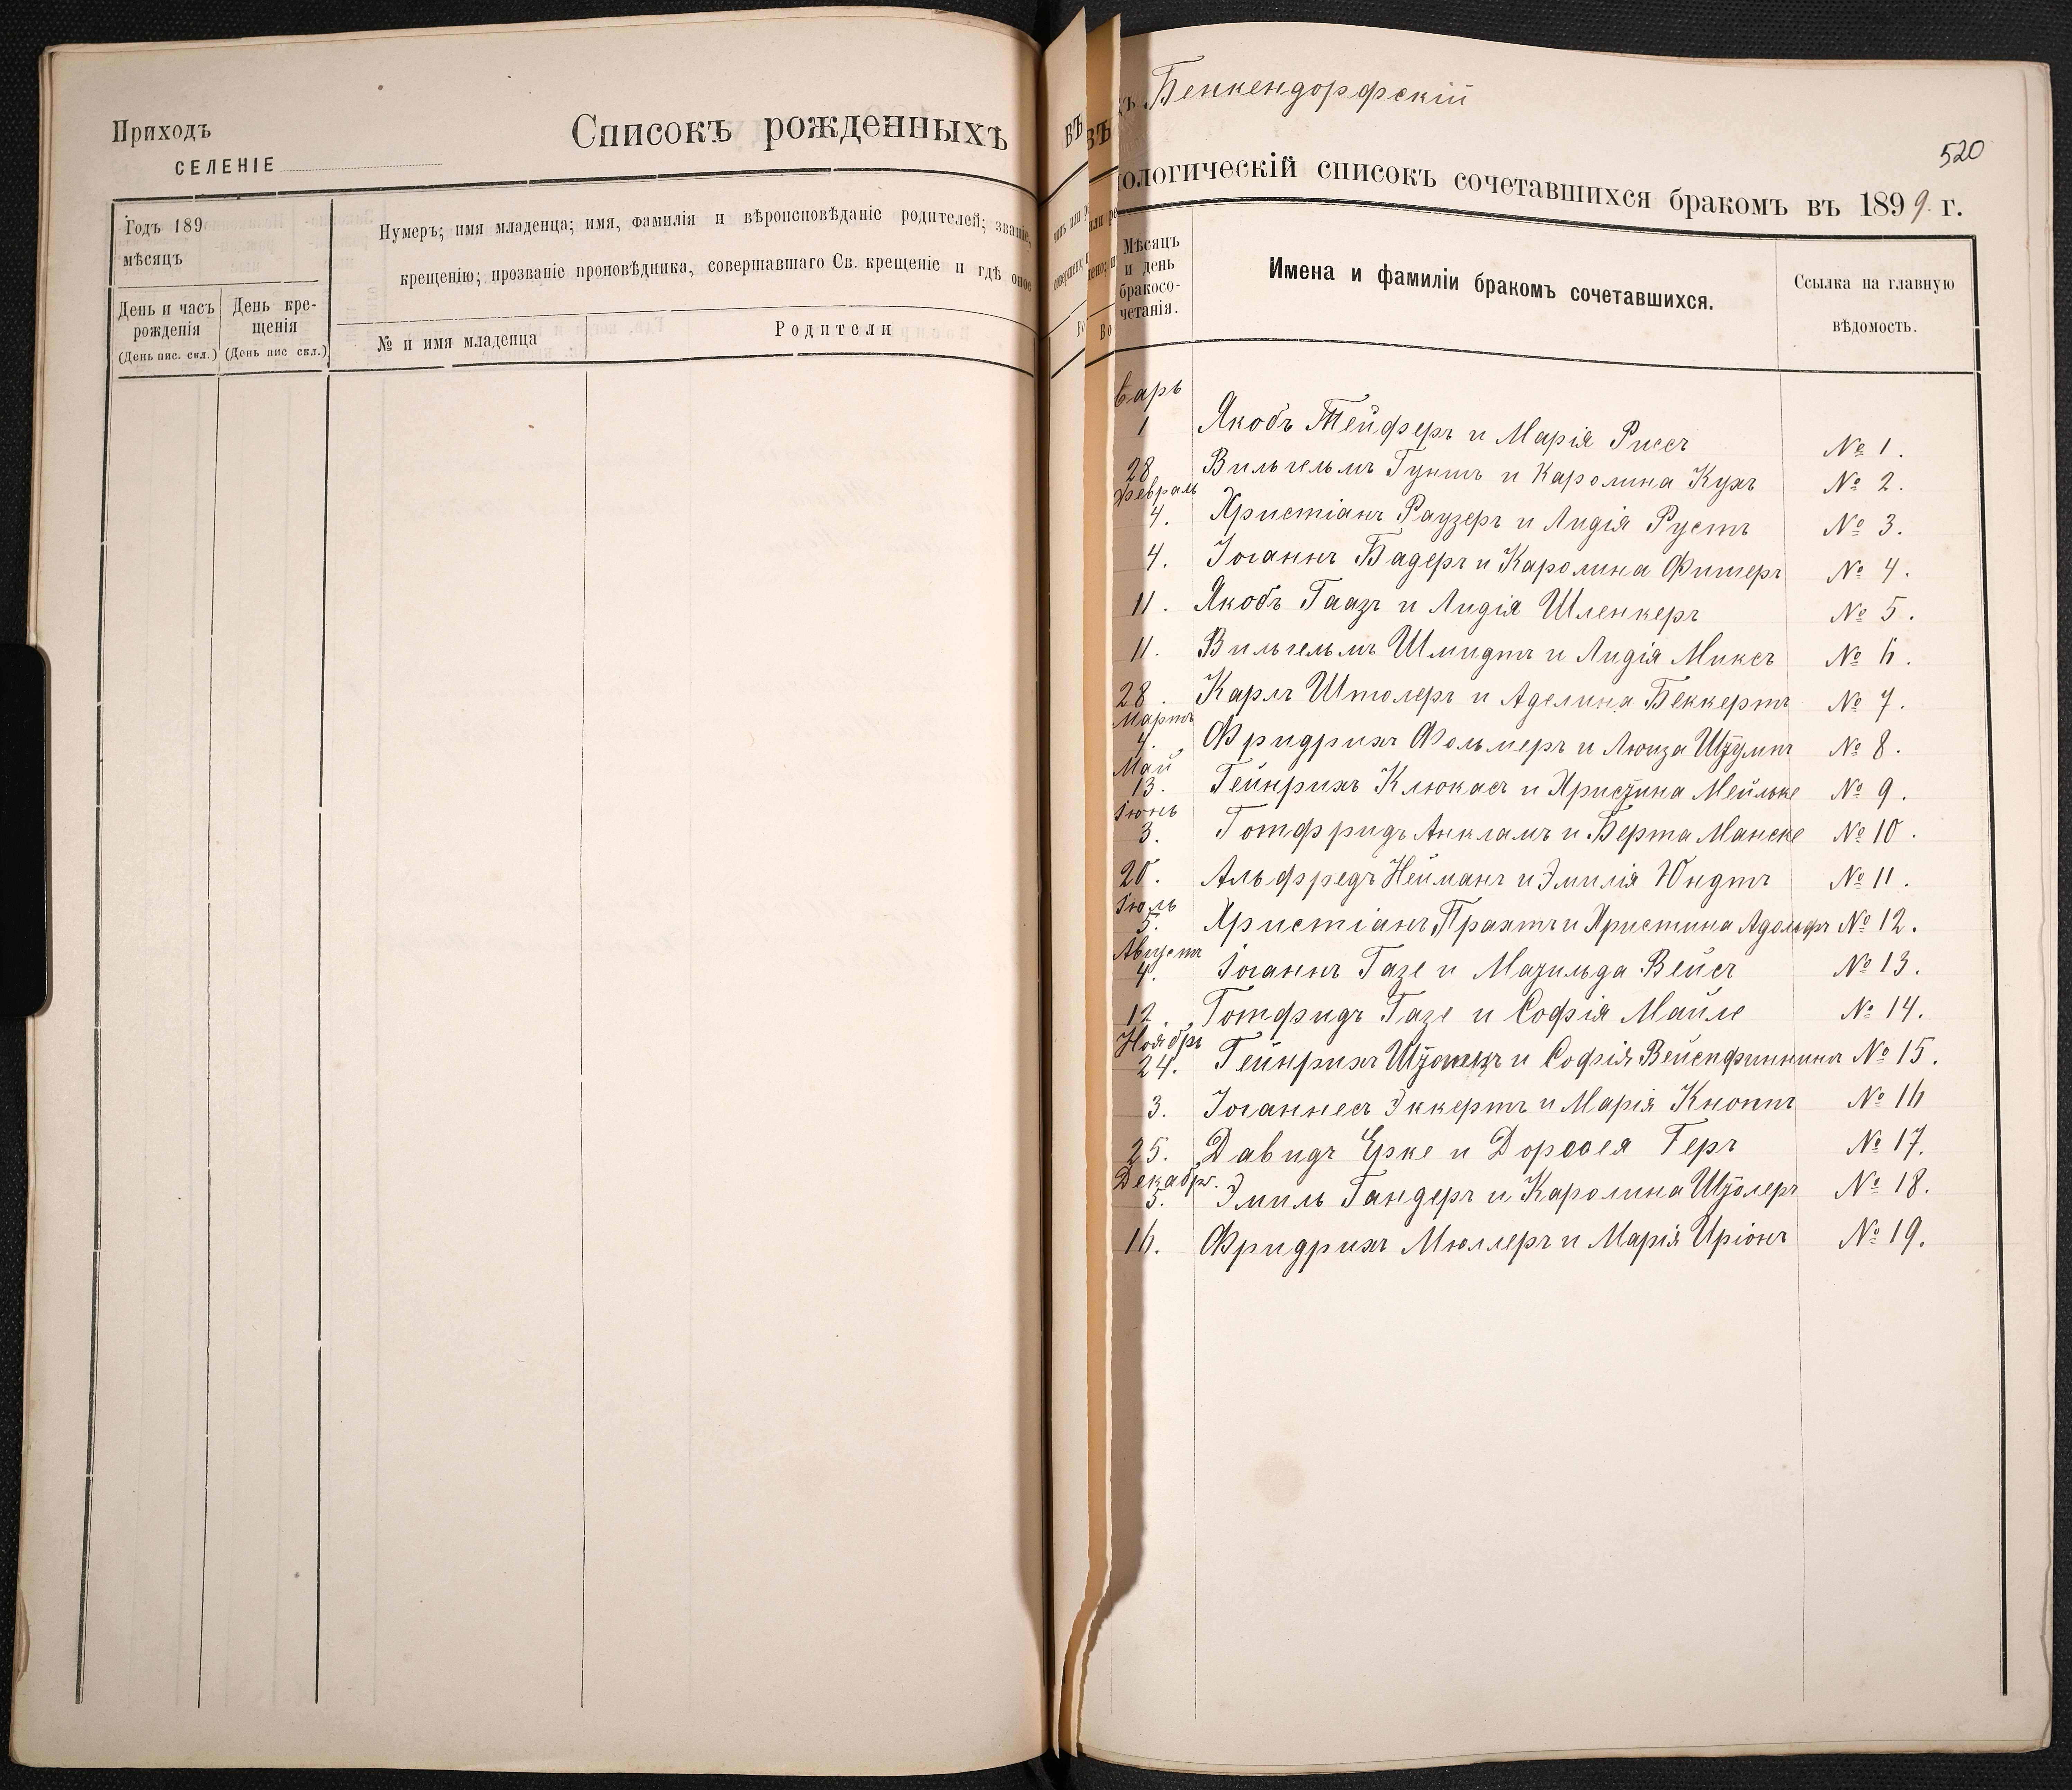 Приходъ
СЕЛЕНІЕ
Списокъ рожденныхъ
Годъ 189
мѣсяцъ
Нумеръ; имя младенца; имя, фамилія и вѣроисповѣданіе родителей; званіе,
крещенію; прозваніе проповѣдника, совершавшаго Св. крещеніе и гдѣ
День и часъ рожденія
(День пис. скл.)
День крещенія
(День пис скл.)
№ и имя младенца
Родители
въ
въ
Бенкендорфскій
520
ологическій списокъ сочетавшихся бракомъ въ 1899. г.
Мѣсяцъ
и день
бракосо-
четанія.
Имена и фамиліи бракомъ сочетавшихся.
Ссылка на главную
вѣдомость.
варь
1 Якобъ Тейферъ и Марія Риссъ № 1.
28 Вильгельмъ Гунтъ и Каролина Кухъ № 2.
Февраль
4. Христіанъ Раузеръ и Лидія Рустъ № 3.
4. Іоганнъ Бадеръ и Каролина Фишеръ № 4.
11. Якобъ Гаазъ и Лидія Шленкеръ № 5.
11. Вильгельмъ Шмидтъ и Лидія Миксъ № 6.
28. Карлъ Штолеръ и Аделина Беккертъ № 7.
Мартъ
4. Фридрихъ Фольмеръ и Люиза № 8.
Май
13. Гейнрихъ Клюкасъ и Христина Мейльке № 9.
Іюнь
3. Готфридъ Анкламъ и Берта Манске № 10.
20. Альфредъ Нейманъ и Эмилія Юндтъ № 11.
Іюль
5. Христіанъ Прахтъ и Христина Адольфъ № 12.
Августъ
4. Іоганнъ Газе и Матильда Вейсъ № 13.
12. Готфридъ Газе и Софія Майле № 14.
Ноябрь
24. Гейнрихъ и Софія № 15.
3. Іоганнесъ Эккертъ и Марія Кноппъ № 16
25. Давидъ Ерке и Доротея Геръ № 17.
Декабрь.
5. Эмиль Гандеръ и Каролина Штолеръ № 18.
16. Фридрихъ Мюллеръ и Марія Иріонъ № 19.